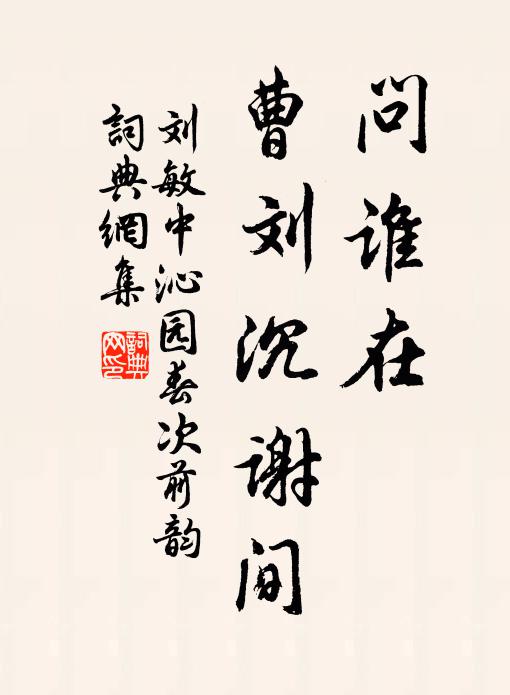 问谁在
曹刘沉谢间
刘敏中沁园春次前韵
詞典網集
詞典
网印